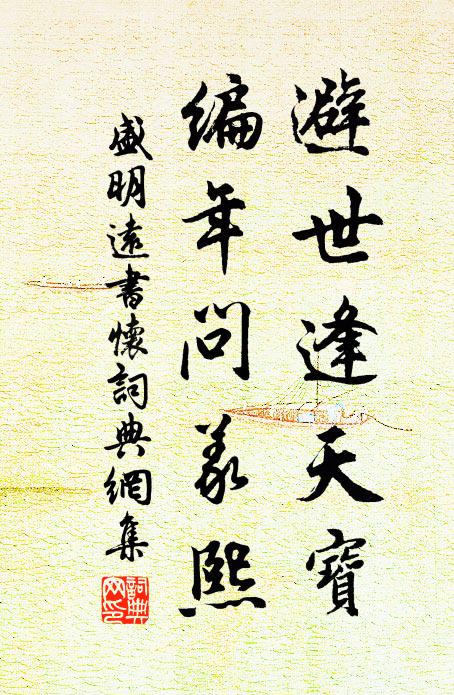 避世逢天寶
編年問義熙
盛明遠書懷詞典網集
詞典網印